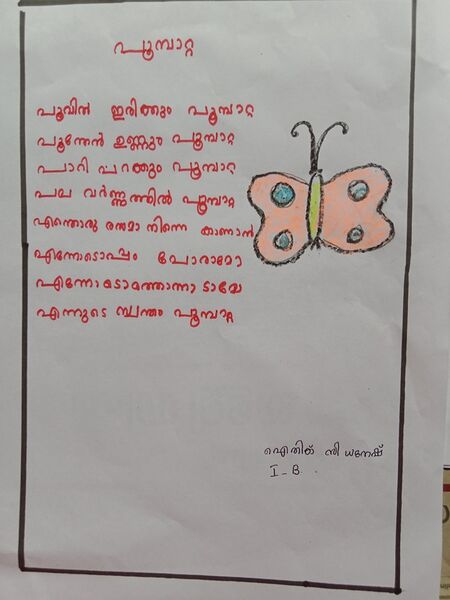 പൂമ്പാറ്റ
പൂവിൽ ഇരിത്തും പൂമ്പാറ്റ
പൂന്തേൻ ഉണ്ണും പൂമ്പാറ്റ
പാറി പറത്തും പൂമ്പാറ്റ
പല വർണ്ണത്തിൽ പൂമ്പാറ്റ
എന്തൊരു രസമാ നിന്നെ കാണാൻ
എന്നോടൊപ്പം പോരാമോ
എന്നുടെ സ്വന്തം പൂമ്പാറ്റ
ഐതിക് സി ധനേഷ്
I - B.